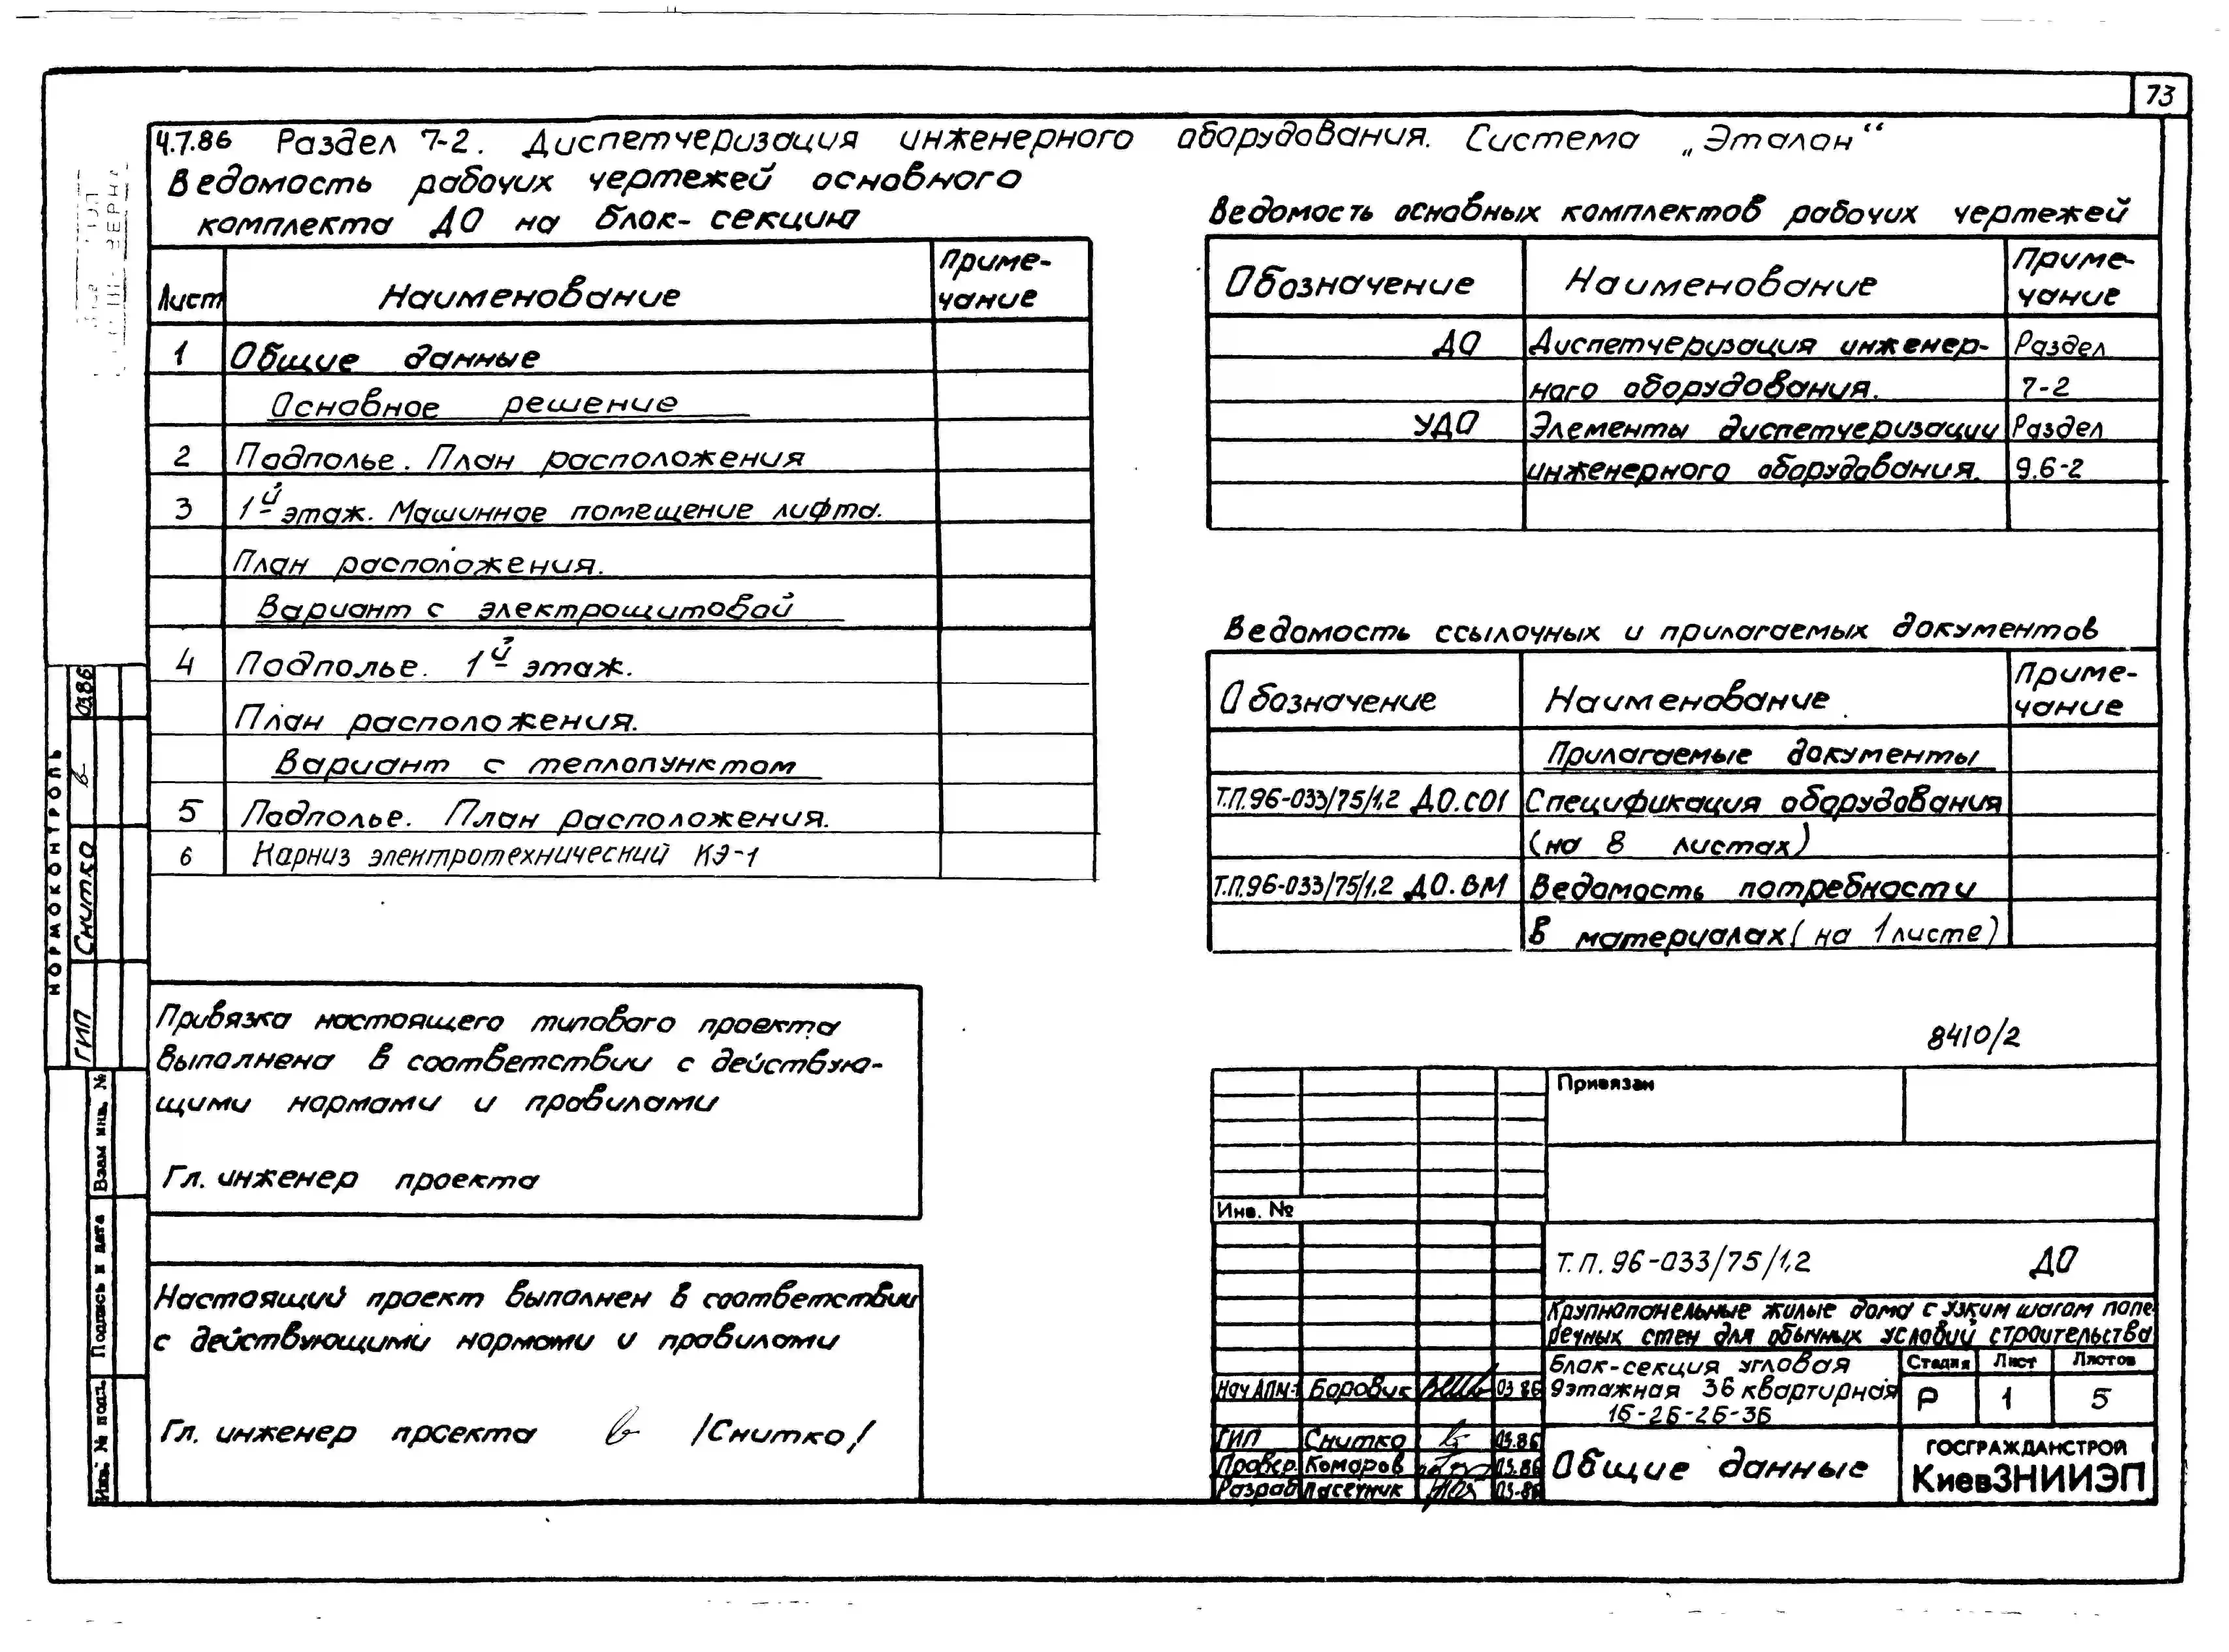 73
Ч.7.86 Раздел 7-2. Диспетчеризация инженерного оборудования. Система „Эталон“
Ведомость рабочих чертежей основного
комплекта ДО на блок-секцию
Лист Наименование Приме-
чание
1 Общие данные
Основное решение
2 Подполье. План расположения
3 1й этаж. Машинное помещение лифта.
План расположения.
Вариант с электрощитовой
4 Подполье. 1й этаж.
План расположения.
Вариант с теплопунктом
5 Подполье. План расположения.
6 Карниз электротехнический КЭ-1
Ведомость основных комплектов рабочих чертежей
Обозначение Наименование Приме-
чание
ДО Диспетчеризация инженер- Раздел
ного оборудования. 7-2
УДО Элементы диспетчеризации Раздел
инженерного оборудования. 9.6-2
Ведомость ссылочных и прилагаемых документов
Обозначение Наименование Приме-
чание
Прилагаемые документы
Т.П.96-033/75/1,2 ДО.СО1 Спецификация оборудования
(на 8 листах)
Т.П.96-033/75/1,2 ДО.ВМ Ведомость потребности
в материалах (на 1 листе)
Привязка настоящего типового проекта
выполнена в соответствии с действую-
щими нормами и правилами
Гл. инженер проекта
Настоящий проект выполнен в соответствии
с действующими нормами и правилами
Гл. инженер проекта /Снитко/
8410/2
Привязан
Инв. №
Т.П. 96-033/75/1,2 ДО
Крупнопанельные жилые дома с узким шагом попе-
речных стен для обычных условий строительства
Блок-секция угловая
9этажная 36 квартирная
1Б-2Б-2Б-3Б
Стадия Лист Листов
Р 1 5
Нач АПМ-1 Боровик 03.86
ГИП Снитко 03.86
Провер. Комаров 03.86
Разраб Пасечник 03.86
Общие данные
ГОСГРАЖДАНСТРОЙ
КиевЗНИИЭП
НОРМОКОНТРОЛЬ
ГИП Снитко 03.86
Взам инв. №
Подпись и дата
Инв. № подл.